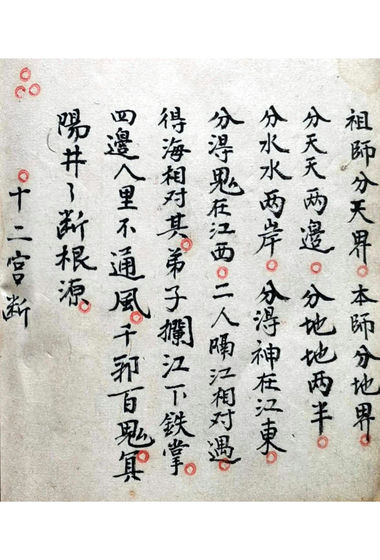 祖師分天界 本師分地界
分天天两邊 分地地两半
分水水两岸 分得神在江東
分得鬼在江西 二人隔江相对遇
得海相对其弟子攔江下鉄掌
四邊八里不通風千邪百鬼冥
陽井々断根源
十二宫断